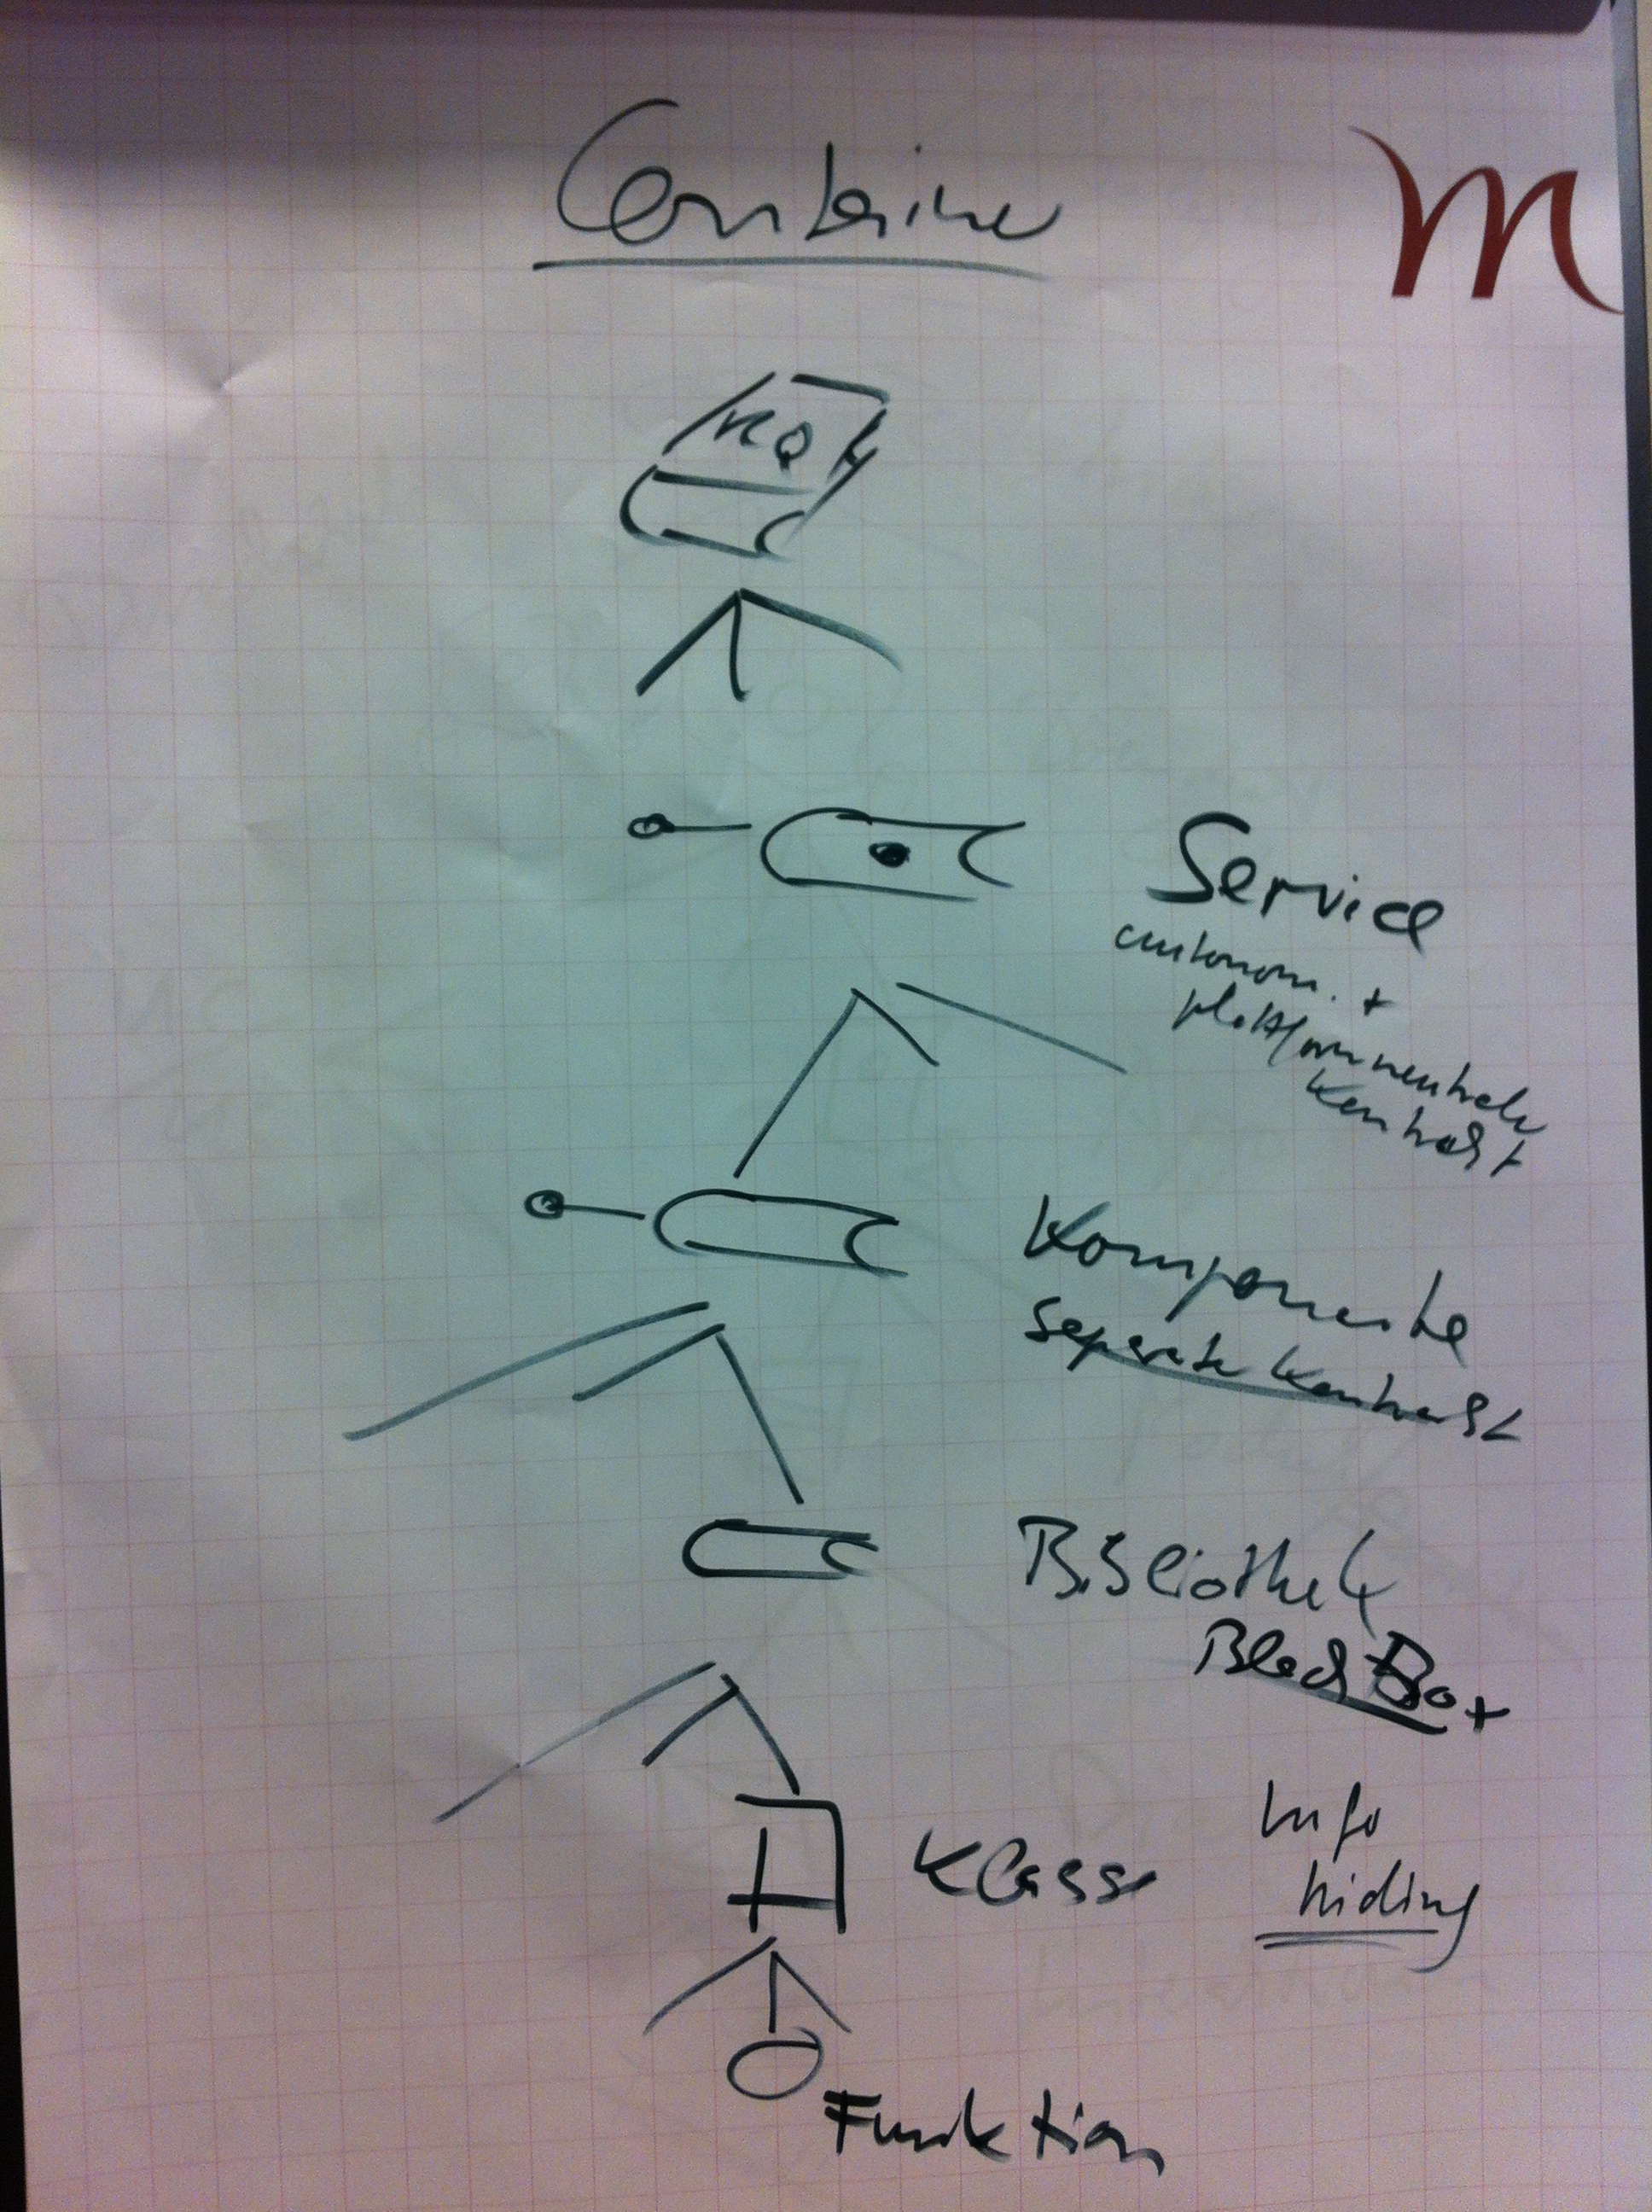 Container
m
Service
autonom. +
plattformneutraler
Kontrakt
Komponente
separater Kontrakt
Bibliothek
Black Box
Klasse
Info
hiding
Funktion